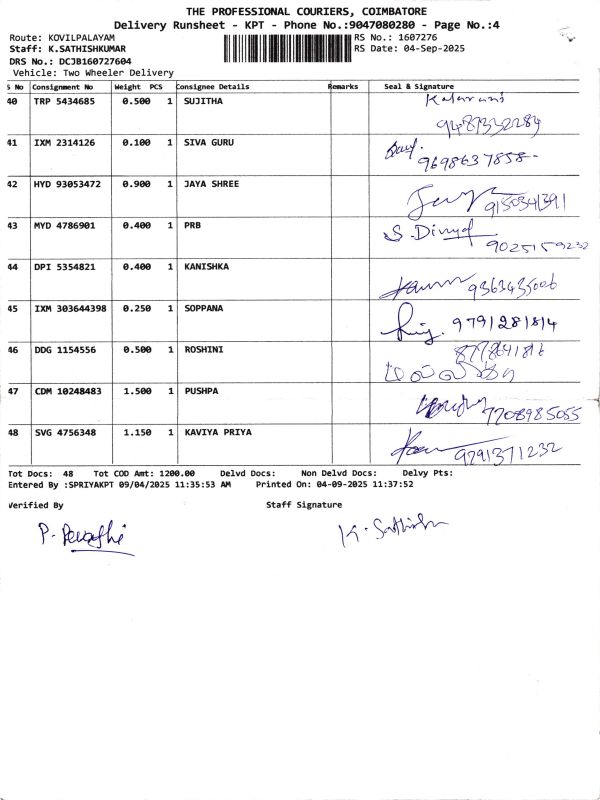 THE PROFESSIONAL COURIERS, COIMBATORE
Delivery Runsheet - KPT - Phone No.:9047080280 - Page No.:4
Route: KOVILPALAYAM RS No.: 1607276
Staff: K.SATHISHKUMAR RS Date: 04-Sep-2025
DRS No.: DCJB160727604
Vehicle: Two Wheeler Delivery
S No Consignment No Weight PCS Consignee Details Remarks Seal & Signature
40 TRP 5434685 0.500 1 SUJITHA
9487332284
41 IXM 2314126 0.100 1 SIVA GURU
9698637858-
42 HYD 93053472 0.900 1 JAYA SHREE
9150341391
43 MYD 4786901 0.400 1 PRB S. Divya
9025159232
44 DPI 5354821 0.400 1 KANISHKA
9363435006
45 IXM 303644398 0.250 1 SOPPANA
9791281814
46 DDG 1154556 0.500 1 ROSHINI 8778641816
47 CDM 10248483 1.500 1 PUSHPA
7708985055
48 SVG 4756348 1.150 1 KAVIYA PRIYA
9291371232
Tot Docs: 48 Tot COD Amt: 1200.00 Delvd Docs: Non Delvd Docs: Delvy Pts:
Entered By :SPRIYAKPT 09/04/2025 11:35:53 AM Printed On: 04-09-2025 11:37:52
Verified By Staff Signature
P. Revathi K. Sathish